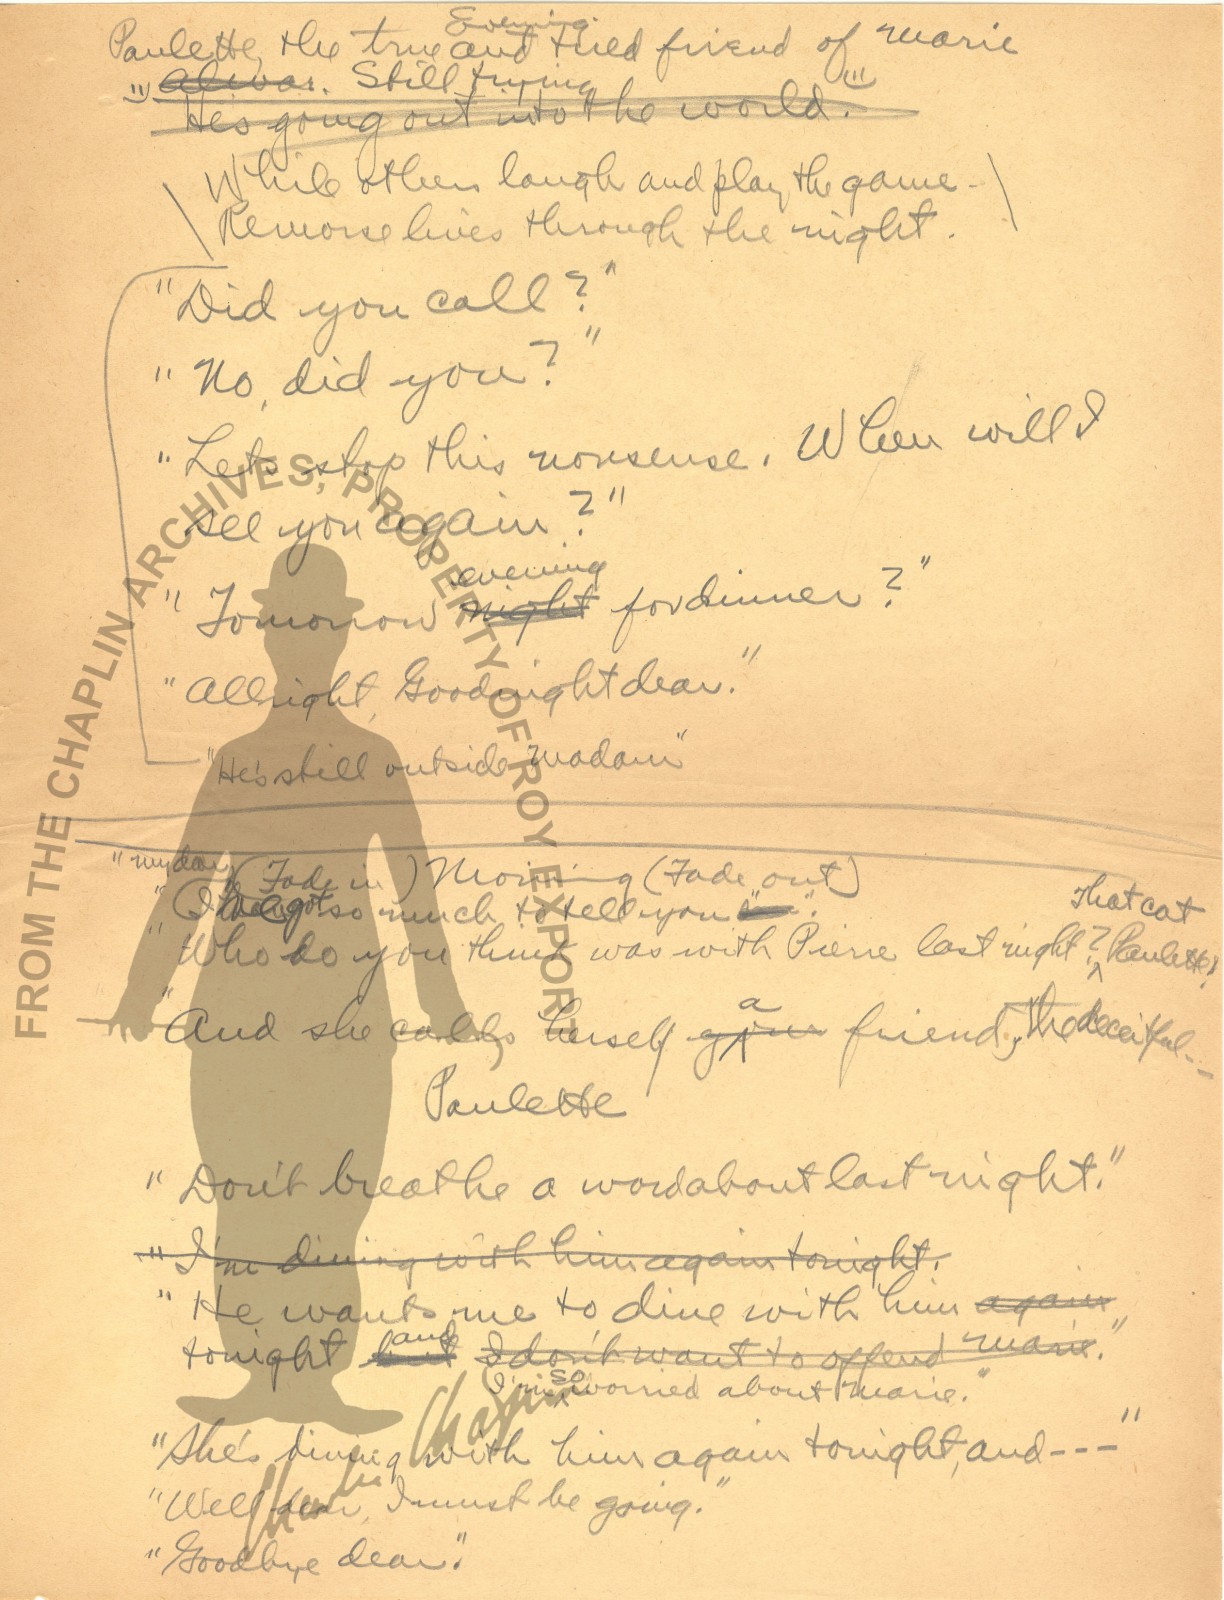 Evening.
Paulette, the true and tried friend of Marie
Still trying
"He's going out into the world."
While others laugh and play the game -
Remorse lives through the night.
"Did you call?"
"No, did you?"
"Lets stop this nonsense. When will I
see you again?"
evening
"Tomorrow night for dinner?"
"Allright, Goodnight dear."
"He's still outside Madam"
"My dear,
(Fade in) Morning (Fade out)
"I've got so much to tell you".
That cat
"Who do you think was with Pierre last night? Paulette!
a
"And she calls herself your friend, the deceitful--
Paulette
"Don't breathe a word about last night."
"I'm dining with him again tonight.
"He wants me to dine with him again
and
tonight but I don't want to offend Marie."
so
I'm worried about Marie."
"She's dining with him again tonight, and ---"
"Well dear, I must be going."
"Goodbye dear."
FROM THE CHAPLIN ARCHIVES, PROPERTY OF ROY EXPORT
Charlie Chaplin